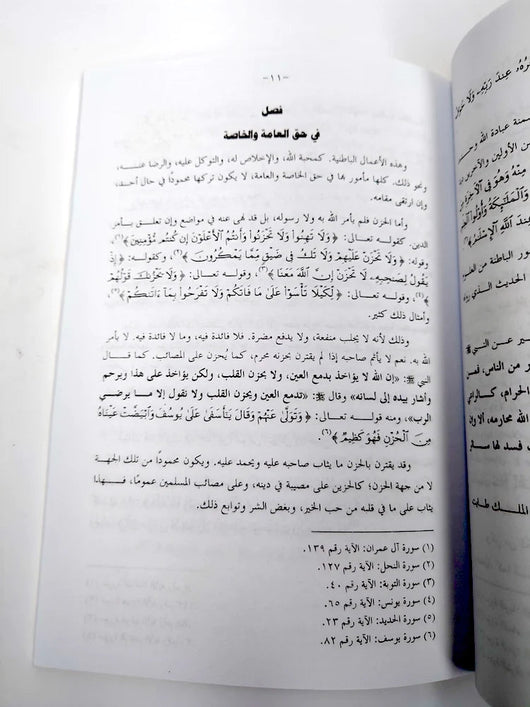 -١١-
فصل
في حق العامة والخاصة
وهذه الأعمال الباطنية. كمحبة الله، والإخلاص له، والتوكل عليه، والرضا عنه،
ونحو ذلك، كلها مأمور بها في حق الخاصة والعامة، لا يكون تركها محمودًا في حال أحد،
وإن ارتقى مقامه.
وأما الحزن فلم يأمر الله به ولا رسوله، بل قد نهى عنه في مواضع وإن تعلق بأمر
الدين. كقوله تعالى: ﴿وَلَا تَهِنُوا وَلَا تَحْزَنُوا وَأَنتُمُ الْأَعْلَوْنَ إِن كُنتُم مُّؤْمِنِينَ﴾(١)،
وقوله: ﴿وَلَا تَحْزَنْ عَلَيْهِمْ وَلَا تَكُ فِي ضَيْقٍ مِّمَّا يَمْكُرُونَ﴾(٢)، وكقوله: ﴿إِذْ
يَقُولُ لِصَاحِبِهِ لَا تَحْزَنْ إِنَّ اللَّهَ مَعَنَا﴾(٣)، وقوله تعالى: ﴿وَلَا يَحْزُنكَ قَوْلُهُمْ
﴾(٤)، وقوله تعالى: ﴿لِكَيْلَا تَأْسَوْا عَلَىٰ مَا فَاتَكُمْ وَلَا تَفْرَحُوا بِمَا آتَاكُمْ﴾(٥)،
وأمثال ذلك كثير.
وذلك لأنه لا يجلب منفعة، ولا يدفع مضرة. فلا فائدة فيه، وما لا فائدة فيه. لا يأمر
الله به. نعم لا يأثم صاحبه إذا لم يقترن بحزنه محرم، كما يُحزن على المصائب. كما قال
النبي ﷺ: «إن الله لا يؤاخذ بدمع العين، ولا بحزن القلب، ولكن يؤاخذ على هذا ويرحم
وأشار بيده إلى لسانه» وقال ﷺ: «تدمع العين ويحزن القلب ولا نقول إلا ما يرضي
الرب»، ومنه قوله تعالى: ﴿وَتَوَلَّىٰ عَنْهُمْ وَقَالَ يَا أَسَفَىٰ عَلَىٰ يُوسُفَ وَابْيَضَّتْ عَيْنَاهُ
مِنَ الْحُزْنِ فَهُوَ كَظِيمٌ﴾(٦).
وقد يقترن بالحزن ما يثاب صاحبه عليه ويحمد عليه. ويكون محمودًا من تلك الجهة
لا من جهة الحزن؛ كالحزين على مصيبة في دينه، وعلى مصائب المسلمين عمومًا، فهذا
يثاب على ما في قلبه من حب الخير، وبغض الشر وتوابع ذلك.
(١) سورة آل عمران: الآية رقم ١٣٩.
(٢) سورة النحل: الآية رقم ١٢٧.
(٣) سورة التوبة: الآية رقم ٤٠.
(٤) سورة يونس: الآية رقم ٦٥.
(٥) سورة الحديد: الآية رقم ٢٣.
(٦) سورة يوسف: الآية رقم ٨٢.
عِندَ رَبِّهِ وَلَا
عبادة الله
من الأولين والآخرين
مِنْهُ وَهُوَ فِي الْآخِرَةِ
وَالْمَلَائِكَةُ وَأُولُو
الْإِسْلَامُ
الباطنة من
الحديث الذي
عن النبي
من الناس، فمن
الحرام، كالراعي
الله محارمه، ألا وإن
فسد لها
الملك طابت